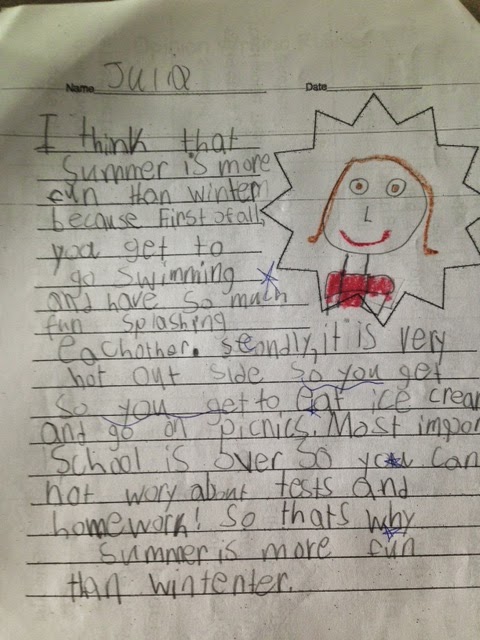 Name Julia Date
I think that
Summer is more
fun than winter
because First of all,
you get to
go swimming
and have so much
fun splashing
eachother. secondly, it is very
hot out side so you get
so you get to eat ice crear
and go on picnics. Most impor
School is over so you can
not wory about tests and
homework! So thats why
Summer is more fun
than wintenter.